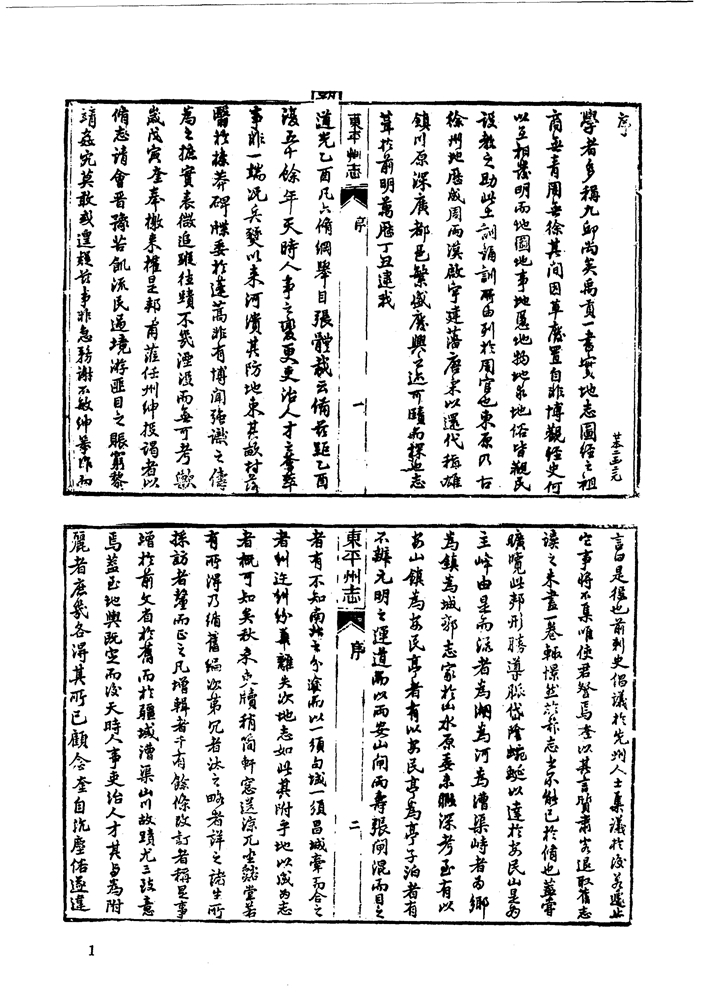 序
學者多稱九邱尚矣禹貢一書實地志圖經之祖
商無青周無徐其間因革廢置自非博觀經史何
以互相發明而地圖地事地慝地物地求地俗皆觀民
設教之助此土訓誦訓所由列於周官也東原乃古
徐州地歷成周而漢啟宇建藩唐宋以還代推雄
鎮川原深廣都邑繁盛廢興之迹可賾而探也志
葺於前明萬歷丁丑逮我
東平州志
序
一
道光乙酉凡六脩綱舉目張體裁云備茲距乙酉
復五十餘年天時人事之變更吏治人才之奮萃
事非一端況兵燹以來河潰其防地東其畝村落
翳於榛莽碑牒委於蓬蒿非有博聞強識之儔
為之摭實表微追蹤往蹟不幾湮沒而無可考歟
歲戊寅奎奉檄來權是邦甫蒞任州紳投謁者以
脩志請會晉豫苦飢流民過境游匪目之賑窮黎
靖姦宄莫敢或遑輒以事非急務謝不敏紳等作而
言曰是役也前刺史倡議於先州人士集議於後若遽止
它事將不集唯使君督焉奎以其言質肅客退取舊志
讀之未盡一卷輒憬然於茲志尚不能已於脩也蓋嘗
曠覽此邦形勝導脈岱陰蜿蜒以達於安民山是為
主峰由是而瀦者為湖為河為漕渠峙者為鄉
為鎮為城郭志家於山水原委未暇深考至有以
安山鎮為安民亭者有以安民亭為亭子泊者有
不辨元明之運道而以兩安山閘兩壽張閘混而目之
東平州志
序
二
者有不知南北之分淪而以一須句城一須昌城牽而合之
者糾迕糾紛草雜失次地志如此其附乎地以成為志
者概可知矣秋來案牘稍簡軒窗送涼兀坐茲堂若
有所得乃循舊編次第冗者汰之略者詳之諸生所
採訪者釐而正之凡增輯者千有餘條改訂者稱是事
增於前文省於舊而於疆域漕渠山川故蹟尤三致意
焉蓋至地輿既定而後天時人事吏治人才其足為附
麗者庶幾各得其所已顧念奎自沅麾佐遂違
1